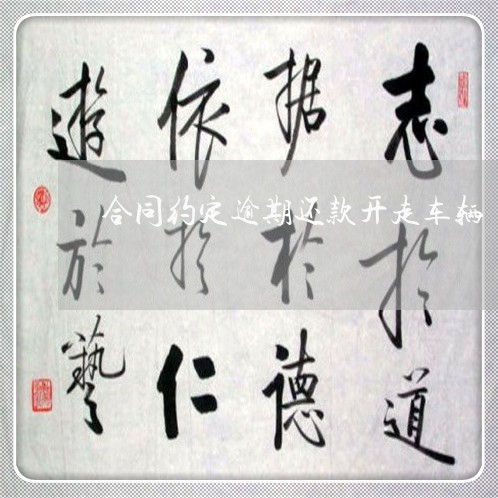 志於道
据於德
依於仁
遊於藝
合同约定逾期还款开走车辆